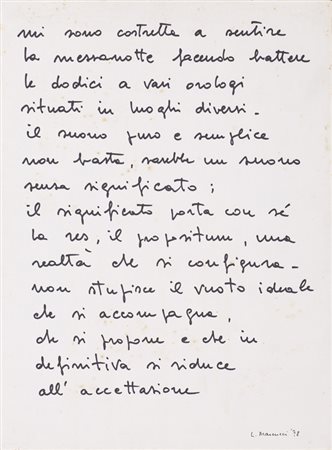 mi sono costretta a sentire
la mezzanotte facendo battere
le dodici a vari orologi
situati in luoghi diversi -
il suono puro e semplice
non basta, sarebbe un suono
senza significato;
il significato porta con sé
la res, il propositum, una
realtà che si configura -
non stupisce il vuoto ideale
che si accompagna,
che si propone e che in
definitiva si riduce
all' accettazione
L. Marcucci '78